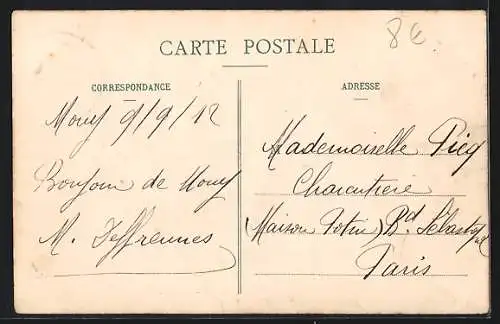 CARTE POSTALE
8€
CORRESPONDANCE
Mouy 9/9/12
Bonjour de Mouy
M. Jeffrennes
ADRESSE
Mademoiselle Picq
Charcutière
Maison Potin, Bd Sébastopol
Paris